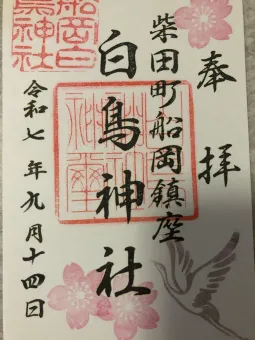 奉拝
柴田町船岡鎮座
白鳥神社
令和七年九月十四日
船岡白鳥神社